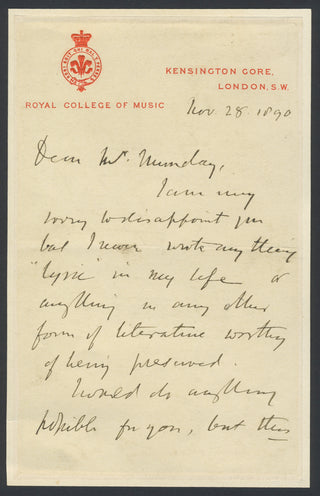 KENSINGTON GORE,
LONDON, S.W.
ROYAL COLLEGE OF MUSIC
Nov. 28. 1890
Dear Mr. Munday,
I am very
sorry to disappoint you
but I never wrote anything
"lyric" in my life or
anything in any other
form of literature worthy
of being preserved.
I would do anything
possible for you, but this